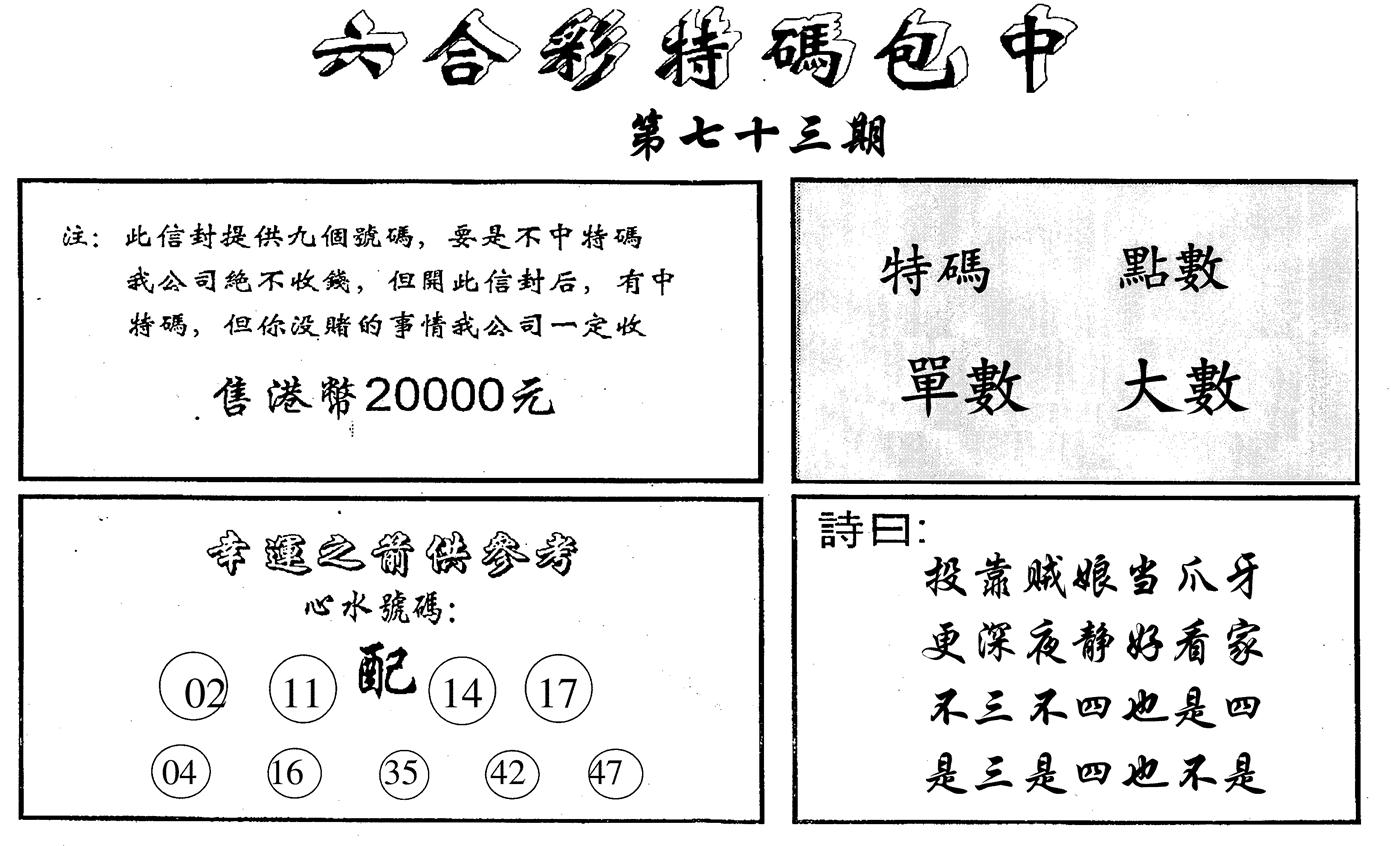 六合彩特碼包中
第七十三期
注：此信封提供九個號碼，要是不中特碼
我公司絶不收錢，但開此信封后，有中
特碼，但你没賭的事情我公司一定收
售港幣20000元
特碼 點數
單數 大數
幸運之箭供參考
心水號碼：
02 11 配 14 17
04 16 35 42 47
詩曰：
投靠贼娘当爪牙
更深夜静好看家
不三不四也是四
是三是四也不是